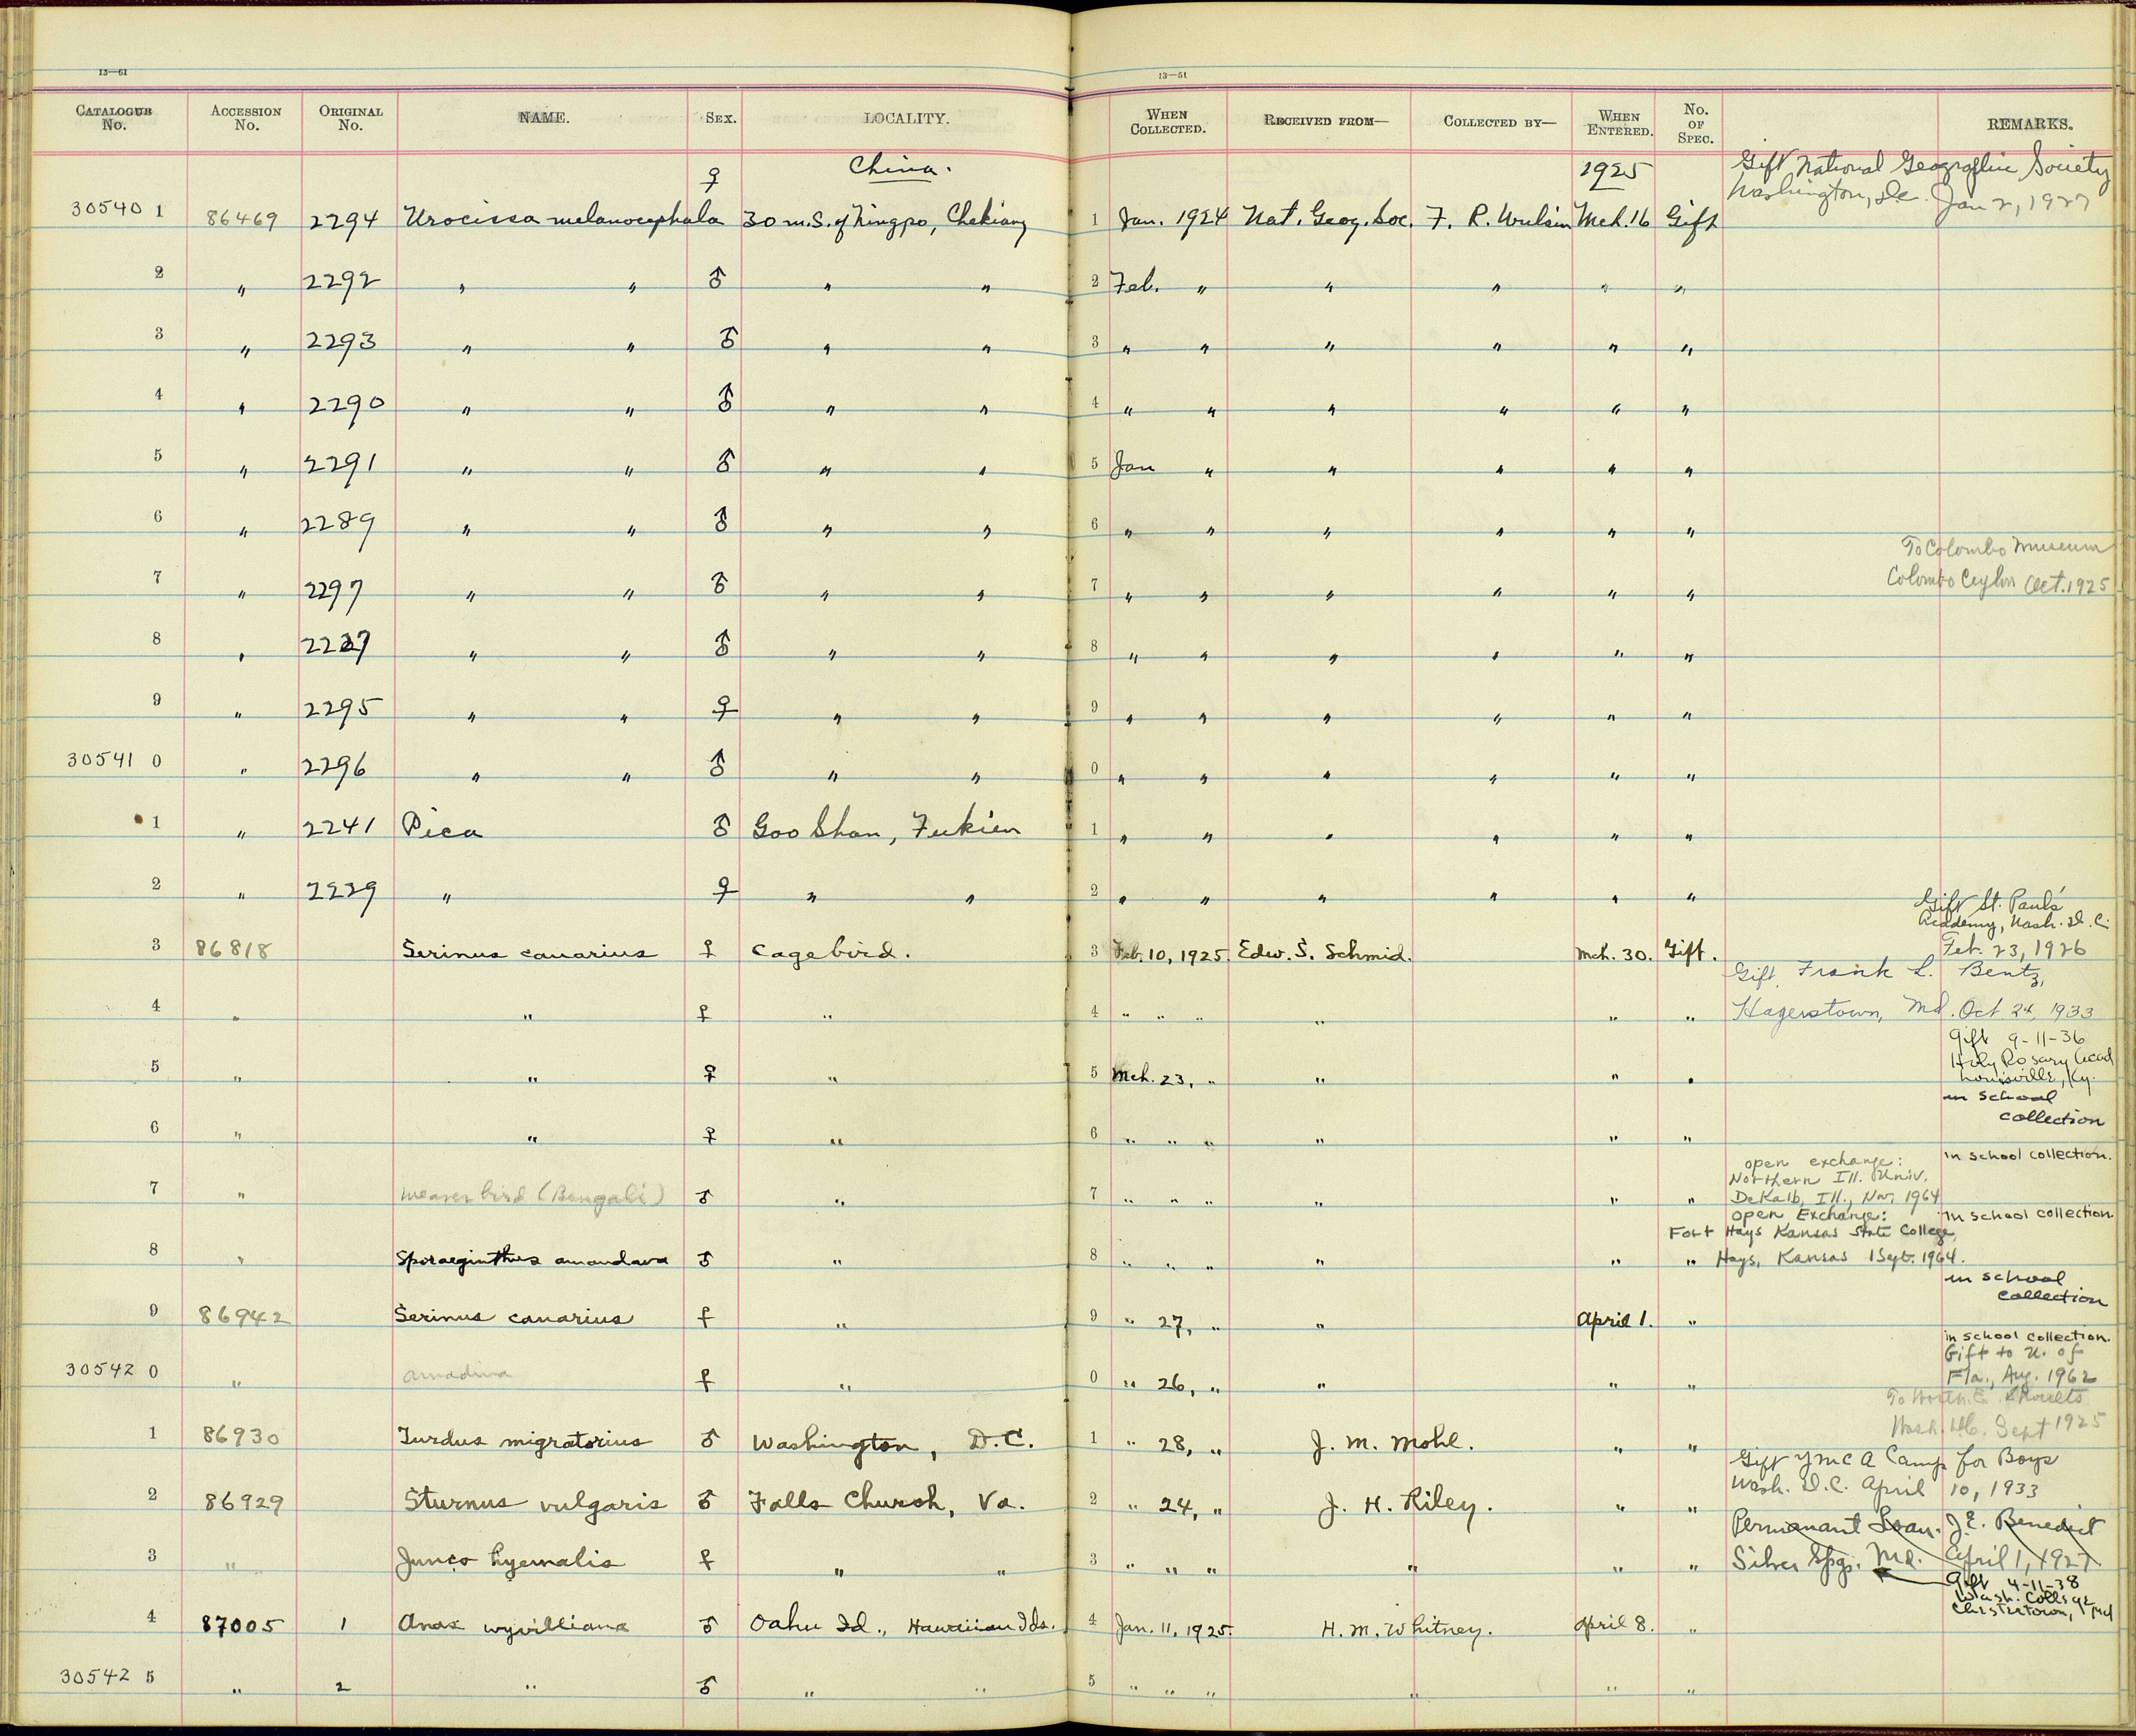 13—51 13—51
CATALOGUE No. ACCESSION No. ORIGINAL No. NAME. SEX. LOCALITY. WHEN COLLECTED. RECEIVED FROM— COLLECTED BY— WHEN ENTERED. No. OF SPEC. REMARKS.
China. 1925 Gift National Geographic Society
Washington, D.C. Jan 2, 1927
30540 1 86469 2294 Urocissa melanocephala ♀ 30 m. S. of Ningpo, Chekiang 1 Jan. 1924 Nat. Geog. Soc. F. R. Wulsin Mch. 16 Gift
2 " 2292 " " ♂ " " 2 Feb. " " " " "
3 " 2293 " " ♂ " " 3 " " " " " "
4 " 2290 " " ♂ " " 4 " " " " " "
5 " 2291 " " ♂ " " 5 Jan " " " " "
6 " 2289 " " ♂ " " 6 " " " " " "
To Colombo Museum
7 " 2297 " " ♂ " " 7 " " " " " " Colombo Ceylon Oct. 1925
8 " " " ♂ " " 8 " " " " " "
9 " 2295 " " ♀ " " 9 " " " " " "
30541 0 " 2296 " " ♂ " " 0 " " " " " "
1 " 2241 Pica ♂ Goo Shan, Fukien 1 " " " " " "
2 " 2229 " ♀ " " 2 " " " " " "
Gift St. Paul's
Academy, Wash. D.C.
3 86818 Serinus canarius ♀ Cage bird. 3 Feb. 10, 1925. Edw. S. Schmid. Mch. 30. Gift. Feb. 23, 1926
Gift Frank L. Bentz,
4 " " ♀ " 4 " " " " " " Hagerstown, Md. Oct 24, 1933
Gift 9-11-36
Holy Rosary Acad
5 " " ♀ " 5 Mch. 23, " " " " Louisville, Ky.
in school
collection
6 " " ♀ " 6 " " " " " "
in school collection.
open exchange:
Northern Ill. Univ.
7 " Weaver bird (Bengali) ♂ " 7 " " " " " " DeKalb, Ill., Nov, 1964
Open Exchange: in school collection.
Fort Hays Kansas State College,
8 " Sporaeginthus amandava ♂ " 8 " " " " " " Hays, Kansas 1 Sept. 1964.
in school
collection
9 86942 Serinus canarius ♀ " 9 " 27, " " April 1. "
in school collection.
Gift to U. of
30542 0 " Amadina ♀ " 0 " 26, " " " " Fla., Aug. 1962
Wash. D.C. Sept 1925
1 86930 Turdus migratorius ♂ Washington, D.C. 1 " 28, " J. M. Mohl. " "
Gift YMCA Camp for Boys
2 86929 Sturnus vulgaris ♂ Falls Church, Va. 2 " 24, " J. H. Riley. " " Wash. D.C. April 10, 1933
Permanant Loan. J. E. Benedict
3 " Junco hyemalis ♀ " " 3 " " " " " " Silver Spgs. Md. April 1, 1927
Gift 4-11-38
Wash. College
Chestertown, Md
4 87005 1 Anas wyvilliana ♂ Oahu Id., Hawaiian Ids. 4 Jan. 11, 1925. H. M. Whitney. April 8. "
30542 5 " 2 " ♂ " " 5 " " " " " "